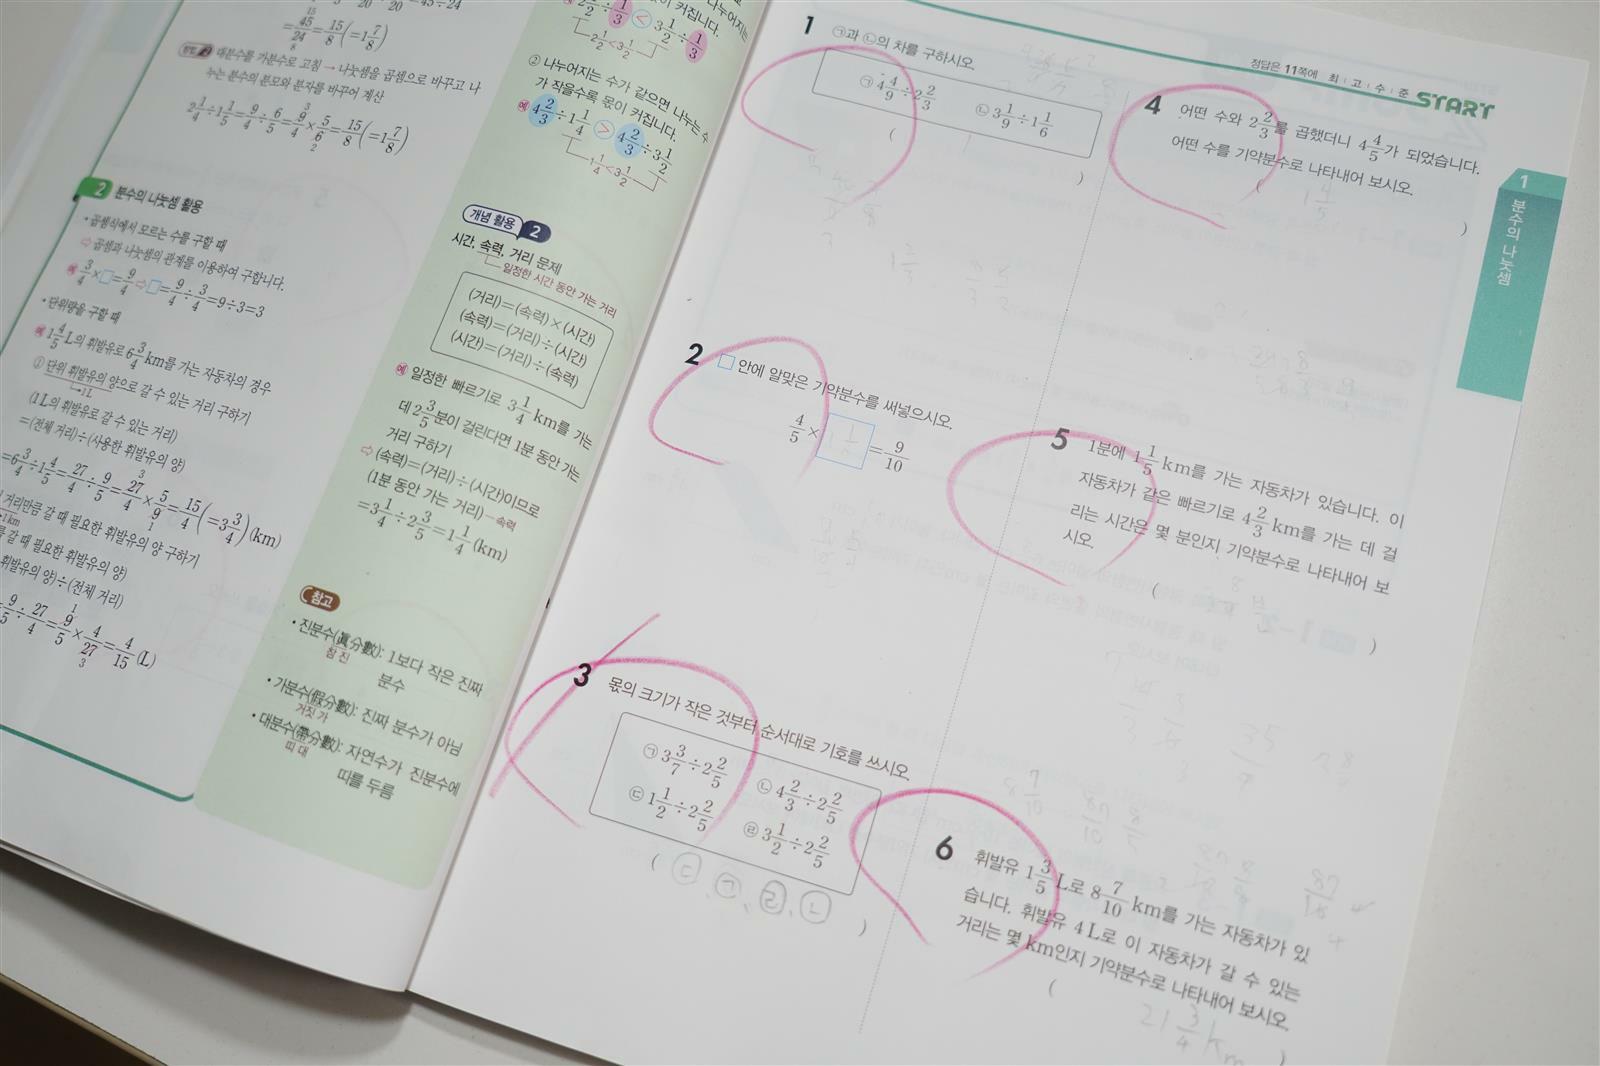 =45/24=15/8(=1 7/8)
방법 2 대분수를 가분수로 고침 → 나눗셈을 곱셈으로 바꾸고 나
누는 분수의 분모와 분자를 바꾸어 계산
2 1/4÷1 1/5=9/4÷6/5=9/4×5/6=15/8(=1 7/8)
2 분수의 나눗셈 활용
• 곱셈식에서 모르는 수를 구할 때
⇨ 곱셈과 나눗셈의 관계를 이용하여 구합니다.
예 3/4×□=9/4 ⇨ □=9/4÷3/4=9÷3=3
• 단위량을 구할 때
예 1 4/5 L의 휘발유로 6 3/4 km를 가는 자동차의 경우
① 단위 휘발유의 양으로 갈 수 있는 거리 구하기
1L
(1 L의 휘발유로 갈 수 있는 거리)
=(전체 거리)÷(사용한 휘발유의 양)
=6 3/4÷1 4/5=27/4÷9/5=27/4×5/9=15/4(=3 3/4)(km)
거리만큼 갈 때 필요한 휘발유의 양 구하기
1 km
를 갈 때 필요한 휘발유의 양)
휘발유의 양)÷(전체 거리)
9/5÷27/4=9/5×4/27=4/15(L)
2 1/2÷1/3 < 3 1/2÷1/3
2 1/2<3 1/2
② 나누어지는 수가 같으면 나누는 수
가 작을수록 몫이 커집니다.
예 4 2/3÷1 1/4 > 4 2/3÷3 1/2
1 1/4<3 1/2
개념 활용 2
시간, 속력, 거리 문제
일정한 시간 동안 가는 거리
(거리)=(속력)×(시간)
(속력)=(거리)÷(시간)
(시간)=(거리)÷(속력)
예 일정한 빠르기로 3 1/4 km를 가는
데 2 3/5분이 걸린다면 1분 동안 가는
거리 구하기
⇨ (속력)=(거리)÷(시간)이므로
(1분 동안 가는 거리)—속력
=3 1/4÷2 3/5=1 1/4 (km)
참고
• 진분수(眞分數): 1보다 작은 진짜
참 진
분수
• 가분수(假分數): 진짜 분수가 아님
거짓 가
• 대분수(帶分數): 자연수가 진분수에
띠 대
띠를 두름
정답은 11쪽에 최|고|수|준 START
1 분수의 나눗셈
1 ㉠과 ㉡의 차를 구하시오.
㉠ 4 4/9÷2 2/3 ㉡ 3 1/9÷1 1/6
( )
2 □ 안에 알맞은 기약분수를 써넣으시오.
4/5× =9/10
3 몫의 크기가 작은 것부터 순서대로 기호를 쓰시오.
㉠ 3 3/7÷2 2/5 ㉡ 4 2/3÷2 2/5
㉢ 1 1/2÷2 2/5 ㉣ 3 1/2÷2 2/5
( ㉢, ㉠, ㉣, ㉡ )
4 어떤 수와 2 2/3를 곱했더니 4 4/5가 되었습니다.
어떤 수를 기약분수로 나타내어 보시오.
( 1 4/5 )
5 1분에 1 1/5 km를 가는 자동차가 있습니다. 이
자동차가 같은 빠르기로 4 2/3 km를 가는 데 걸
리는 시간은 몇 분인지 기약분수로 나타내어 보
시오.
( )
6 휘발유 1 3/5 L로 8 7/10 km를 가는 자동차가 있
습니다. 휘발유 4 L로 이 자동차가 갈 수 있는
거리는 몇 km인지 기약분수로 나타내어 보시오.
( 21 3/4 km )